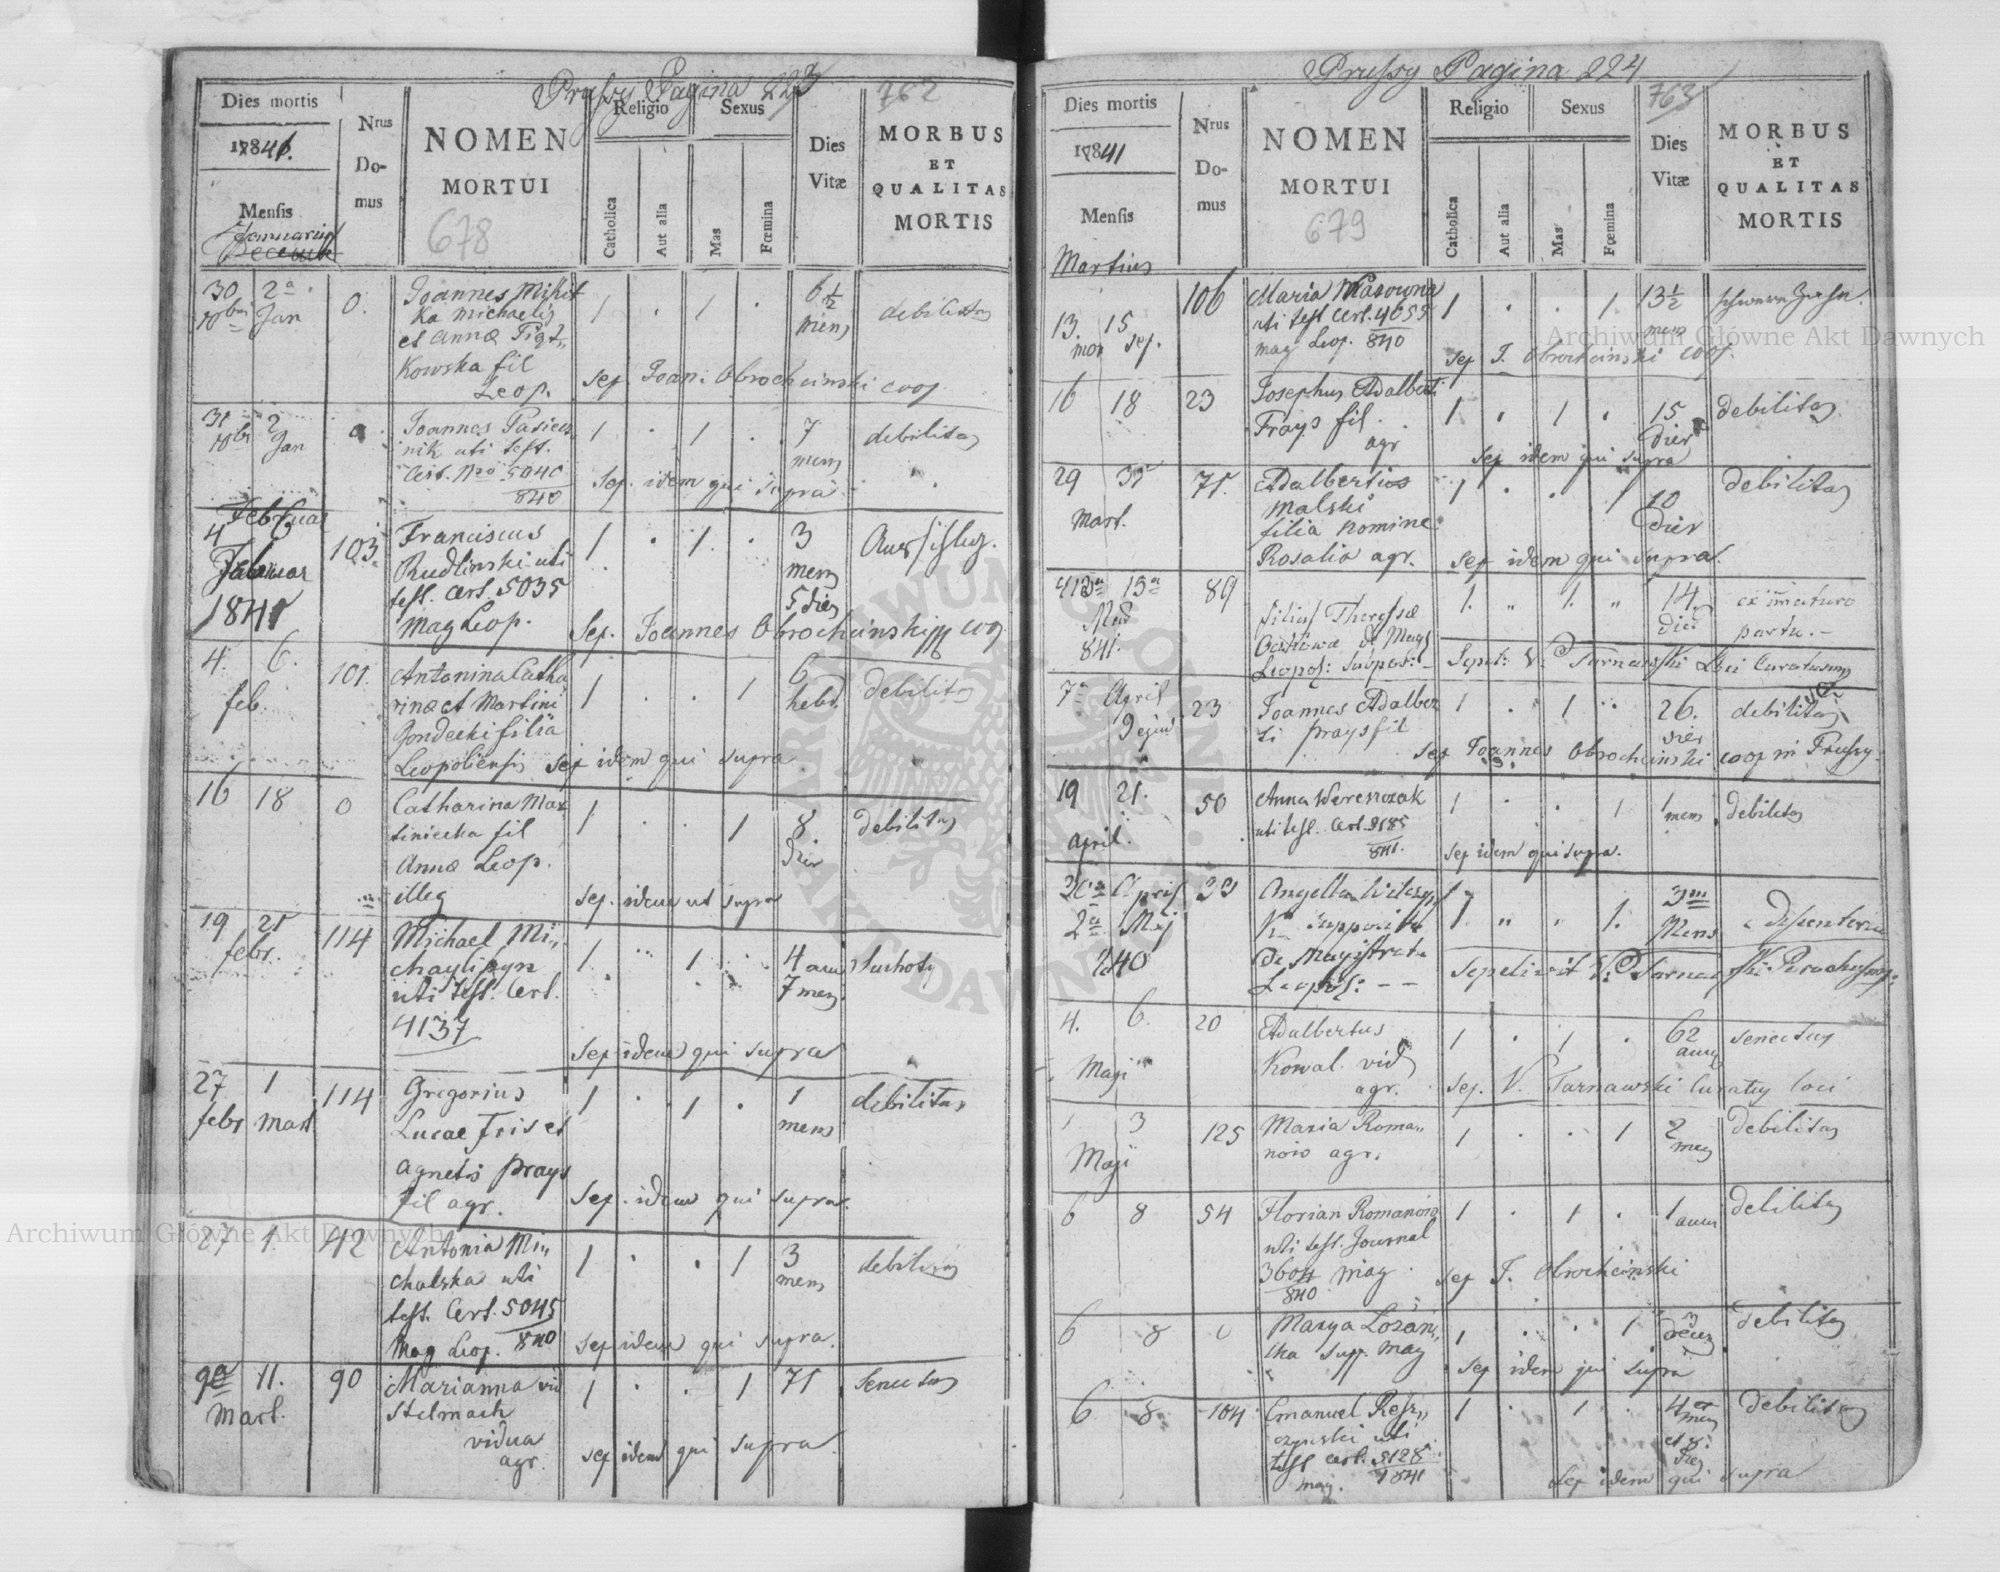 Prussy Pagina 223
762
Dies mortis
1841.
Mensis
Januarius
Nrus
Do-
mus
NOMEN
MORTUI
678
Religio
Catholica
Aut alia
Sexus
Mas
Fœmina
Dies
Vitæ
MORBUS
ET
QUALITAS
MORTIS
30 2a
10bris Jan
0.
Joannes Mikit
ka Michaelis
et Annæ Piąt„
kowska fil
Leop.
1 . 1 .
6 1/2
mens
debilitas
Sep. Joan: Obrochcinski coop
31 2
10bris Jan
Joannes Pasicz
nik uti test.
Cert. Nro 5040
840
1 . 1 .
7
mens
debilitas
Sep. idem qui supra
Februar
4 6
Februar
1841
103
Franciscus
Rudlinski uti
test. Cert. 5035
Mag Leop.
1 . 1 .
3
mens
5 dies
Sep. Joannes Obrochcinski coop
4. 6.
feb.
101.
Antonina Catha
rinæ et Martini
Gondecki filia
Leopoliensis
1 . . 1
6
hebd.
debilitas
Sep idem qui supra
16 18
0
Catharina Mar
tiniecka fil
Annæ Leop.
illeg
1 . . 1
8
dier
debilitas
Sep. idem ut supra
19 21
febr.
114
Michael Mi„
chayliszyn
uti test. Cert.
4137
1 " 1 .
4 ann
7 mens
Suchoty
Sep idem qui supra
27 1
febr mart.
114
Gregorius
Lucae Fris et
Agnetis Prays
fil agr.
1 . 1 .
1
mens
debilitas
Sep. idem qui supra.
27 1.
42
Antonia Mi„
chalska uti
test. Cert. 5045
Mag Leop. 840
1 . . 1
3
mens
debilitas
Sep idem qui supra.
9a 11.
Mart.
90
Marianna
Stelmach
vidua
agr.
1 . . 1
71
Senectus
Sep idem qui supra
Prussy Pagina 224
763
Dies mortis
1841
Mensis
Martius
Nrus
Do-
mus
NOMEN
MORTUI
679
Religio
Catholica
Aut alia
Sexus
Mas
Fœmina
Dies
Vitæ
MORBUS
ET
QUALITAS
MORTIS
13. 15
mor sep.
106
Maria
uti test Cert. 4655
mag Leop. 840
1 . . 1
13 1/2
mens
Sep J. Obrochcinski coop.
16 18
23
Josephus Adalberti
Prays fil.
agr
1 . 1 .
15
dier
debilitas
Sep idem qui supra
29 31
Mart.
71.
Adalbertios
Malski
filia nomine
Rosalia agr.
1 . . 1
10
dier
debilitas
Sep idem qui supra.
13a 15a
841.
89
filius Theressæ
de Magi
Leopol:
1. " 1. "
14
dier
ex imaturo
partu. -
Sepel: V. Tarnawski Loci Curatus
7a April
9 ejus
23
Joannes Adalber
ti Prays fil
1 . 1 "
26.
dier
debilitas
Sep Joannes Obrochcinski coop in Prussy
19 21.
April.
50
Anna Werenczak
uti test. Cert. 5185
841.
1 . . 1
1
mens
debilitas
Sep idem qui supra.
April
2a Maj
840
Angella
de Magistratu
Leopol: - -
1. " " 1.
3
Mens
Sepelivit V: Tarnawski Parochus
4. 6.
Maji
20
Adalbertus
Kowal vid
agr.
1 . 1 .
62
ann
senectus
Sep. V. Tarnawski Curatus loci
1 3
Maji
125
Maria Roma„
now agr.
1 . . 1
2
mens
debilitas
6 8
54
Florian Romanow
uti test. Journal
3604 mag
840
1 . 1 .
1 ann
debilitas
Sep J. Obrochcinski
6 8
0
Marya Lozin„
ska supp. mag
1 . . 1
3
debilitas
Sep idem qui supra
6 8
104
Emanuel Resz„
czynski uti
test Cert. 5128
1841
mag.
1 . 1 .
4
mens
et 8.
dies
debilitas
Sep idem qui supra
Archiwum Główne Akt Dawnych
Archiwum Główne Akt Dawnych
ARCHIWUM GŁÓWNE AKT DAWNYCH